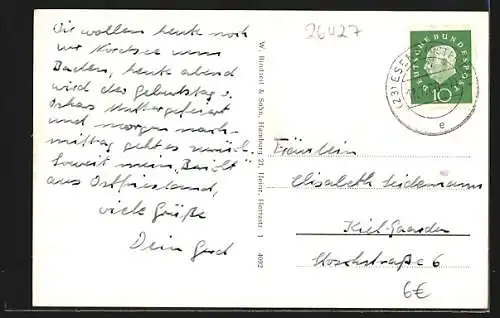 Wir wollen heute noch
zur Nordsee zum
Baden, heute abend
wird der Geburtstag v.
Mutter gefeiert
und morgen nach-
mittag geht es zurück.
Soweit mein "Bericht"
aus Ostfriesland,
viele Grüße
Dein Gerd
W. Bontzol & Sohn, Hamburg 21, Heinr. Hertzstr. 1 4092
26427
DEUTSCHE BUNDESPOST
10
(23) ESENS
e
Fräulein
Elisabeth Seidemann
Kiel-Gaarden
Stoschstraße 6
6€